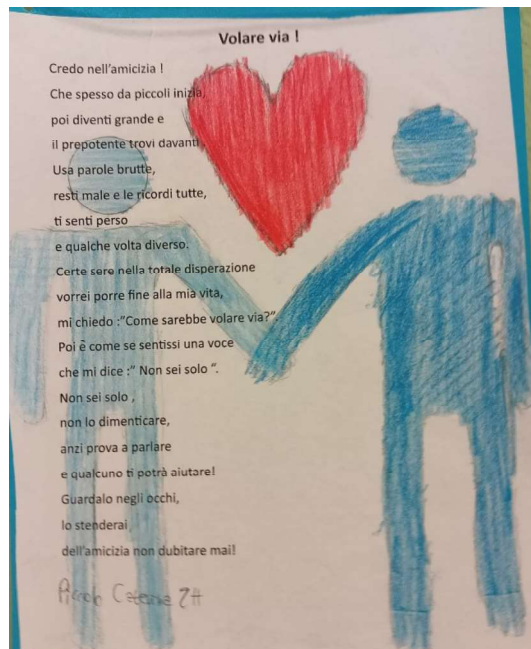 Volare via !
Credo nell'amicizia !
Che spesso da piccoli inizia,
poi diventi grande e
il prepotente trovi davanti.
Usa parole brutte,
resti male e le ricordi tutte,
ti senti perso
e qualche volta diverso.
Certe sere nella totale disperazione
vorrei porre fine alla mia vita,
mi chiedo :"Come sarebbe volare via?".
Poi è come se sentissi una voce
che mi dice :" Non sei solo ".
Non sei solo ,
non lo dimenticare,
anzi prova a parlare
e qualcuno ti potrà aiutare!
Guardalo negli occhi,
lo stenderai
dell'amicizia non dubitare mai!